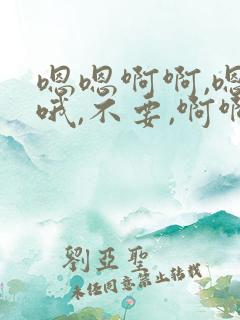 嗯嗯啊啊,嗯
哦,不要,啊啊
劉亞聖
未经同意禁止转载